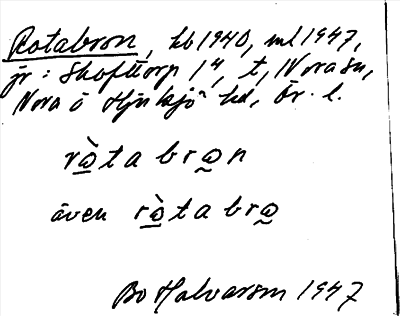 Rotabron, kb 1940, ml 1947,
jr: Skofttorp 1⁴, t, Nora sn,
Nora o Hjulsjö hd, Ör. l.
rò̲ta brǫn
även rò̲ta brǫ
Bo Halvarson 1947